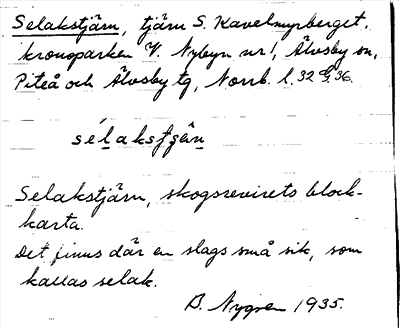 Selakstjärn, tjärn S. Kavelmyrberget,
kronoparken V. Nybyn nr 1, Älvsby sn,
Piteå och Älvsby tg, Norrb. l. 32 G. 36.
sélakstjärn
Selakstjärn, skogsrevirets block-
karta.
Det finns där en slags små sik, som
kallas selak.
B. Nygren 1935.